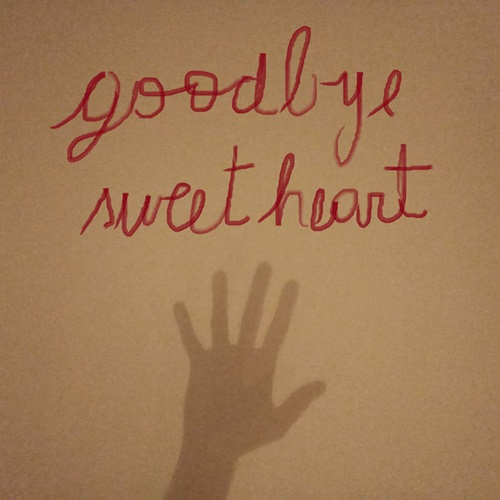 goodbye
sweet heart